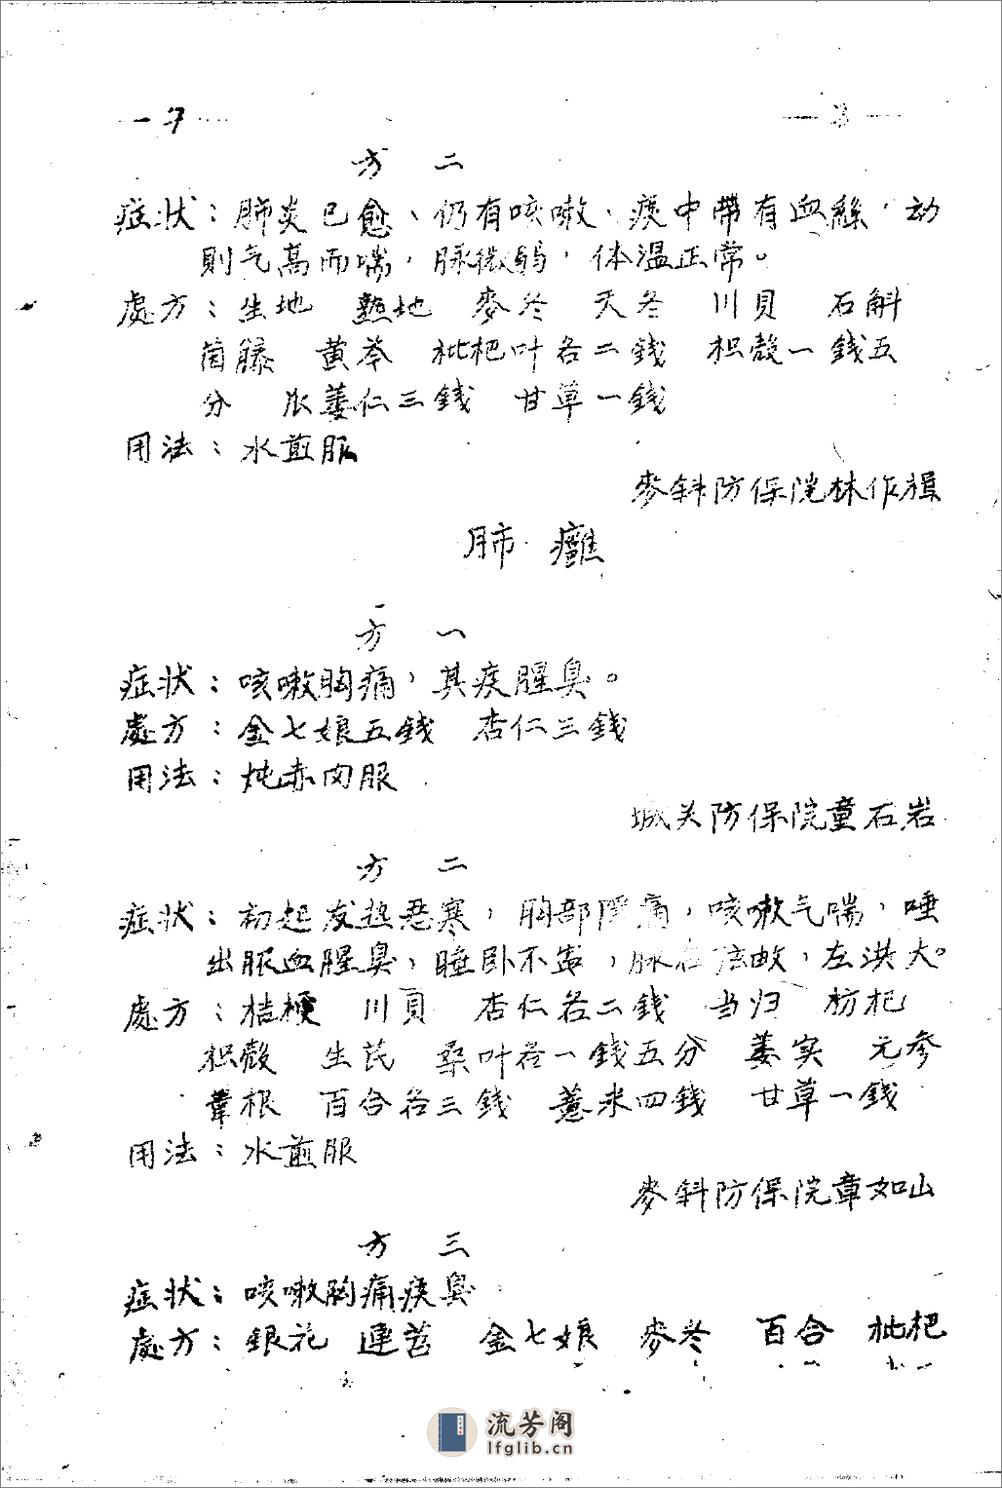 方 二
症状：肺炎已愈、仍有咳嗽、痰中帶有血絲，动
則气高而喘，脉微弱，体温正常。
處方：生地 熟地 麥冬 天冬 川貝 石斛
茵藤 黄芩 枇杷叶各二錢 枳殼一錢五
分 瓜蒌仁三錢 甘草一錢
用法：水煎服
麥斜防保院林作楫
肺 癰
方 一
症状：咳嗽胸痛，其痰腥臭。
處方：金七娘五錢 杏仁三錢
用法：炖赤肉服
城关防保院童石岩
方 二
症状：初起发热恶寒，胸部隐痛，咳嗽气喘，唾
出脓血腥臭，睡卧不寧，脉右弦数，左洪大。
處方：桔梗 川貝 杏仁各二錢 当归 枋杞
枳殼 生芪 桑叶各一錢五分 蒌实 元参
葦根 百合各三錢 薏米四錢 甘草一錢
用法：水煎服
麥斜防保院章如山
方 三
症状：咳嗽胸痛痰臭
處方：銀花 連召 金七娘 麥冬 百合 枇杷
流芳阁
lfglib.cn